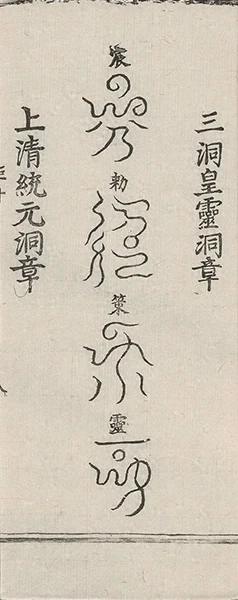 三洞皇靈洞章
宸
勅
策
靈
上清統元洞章